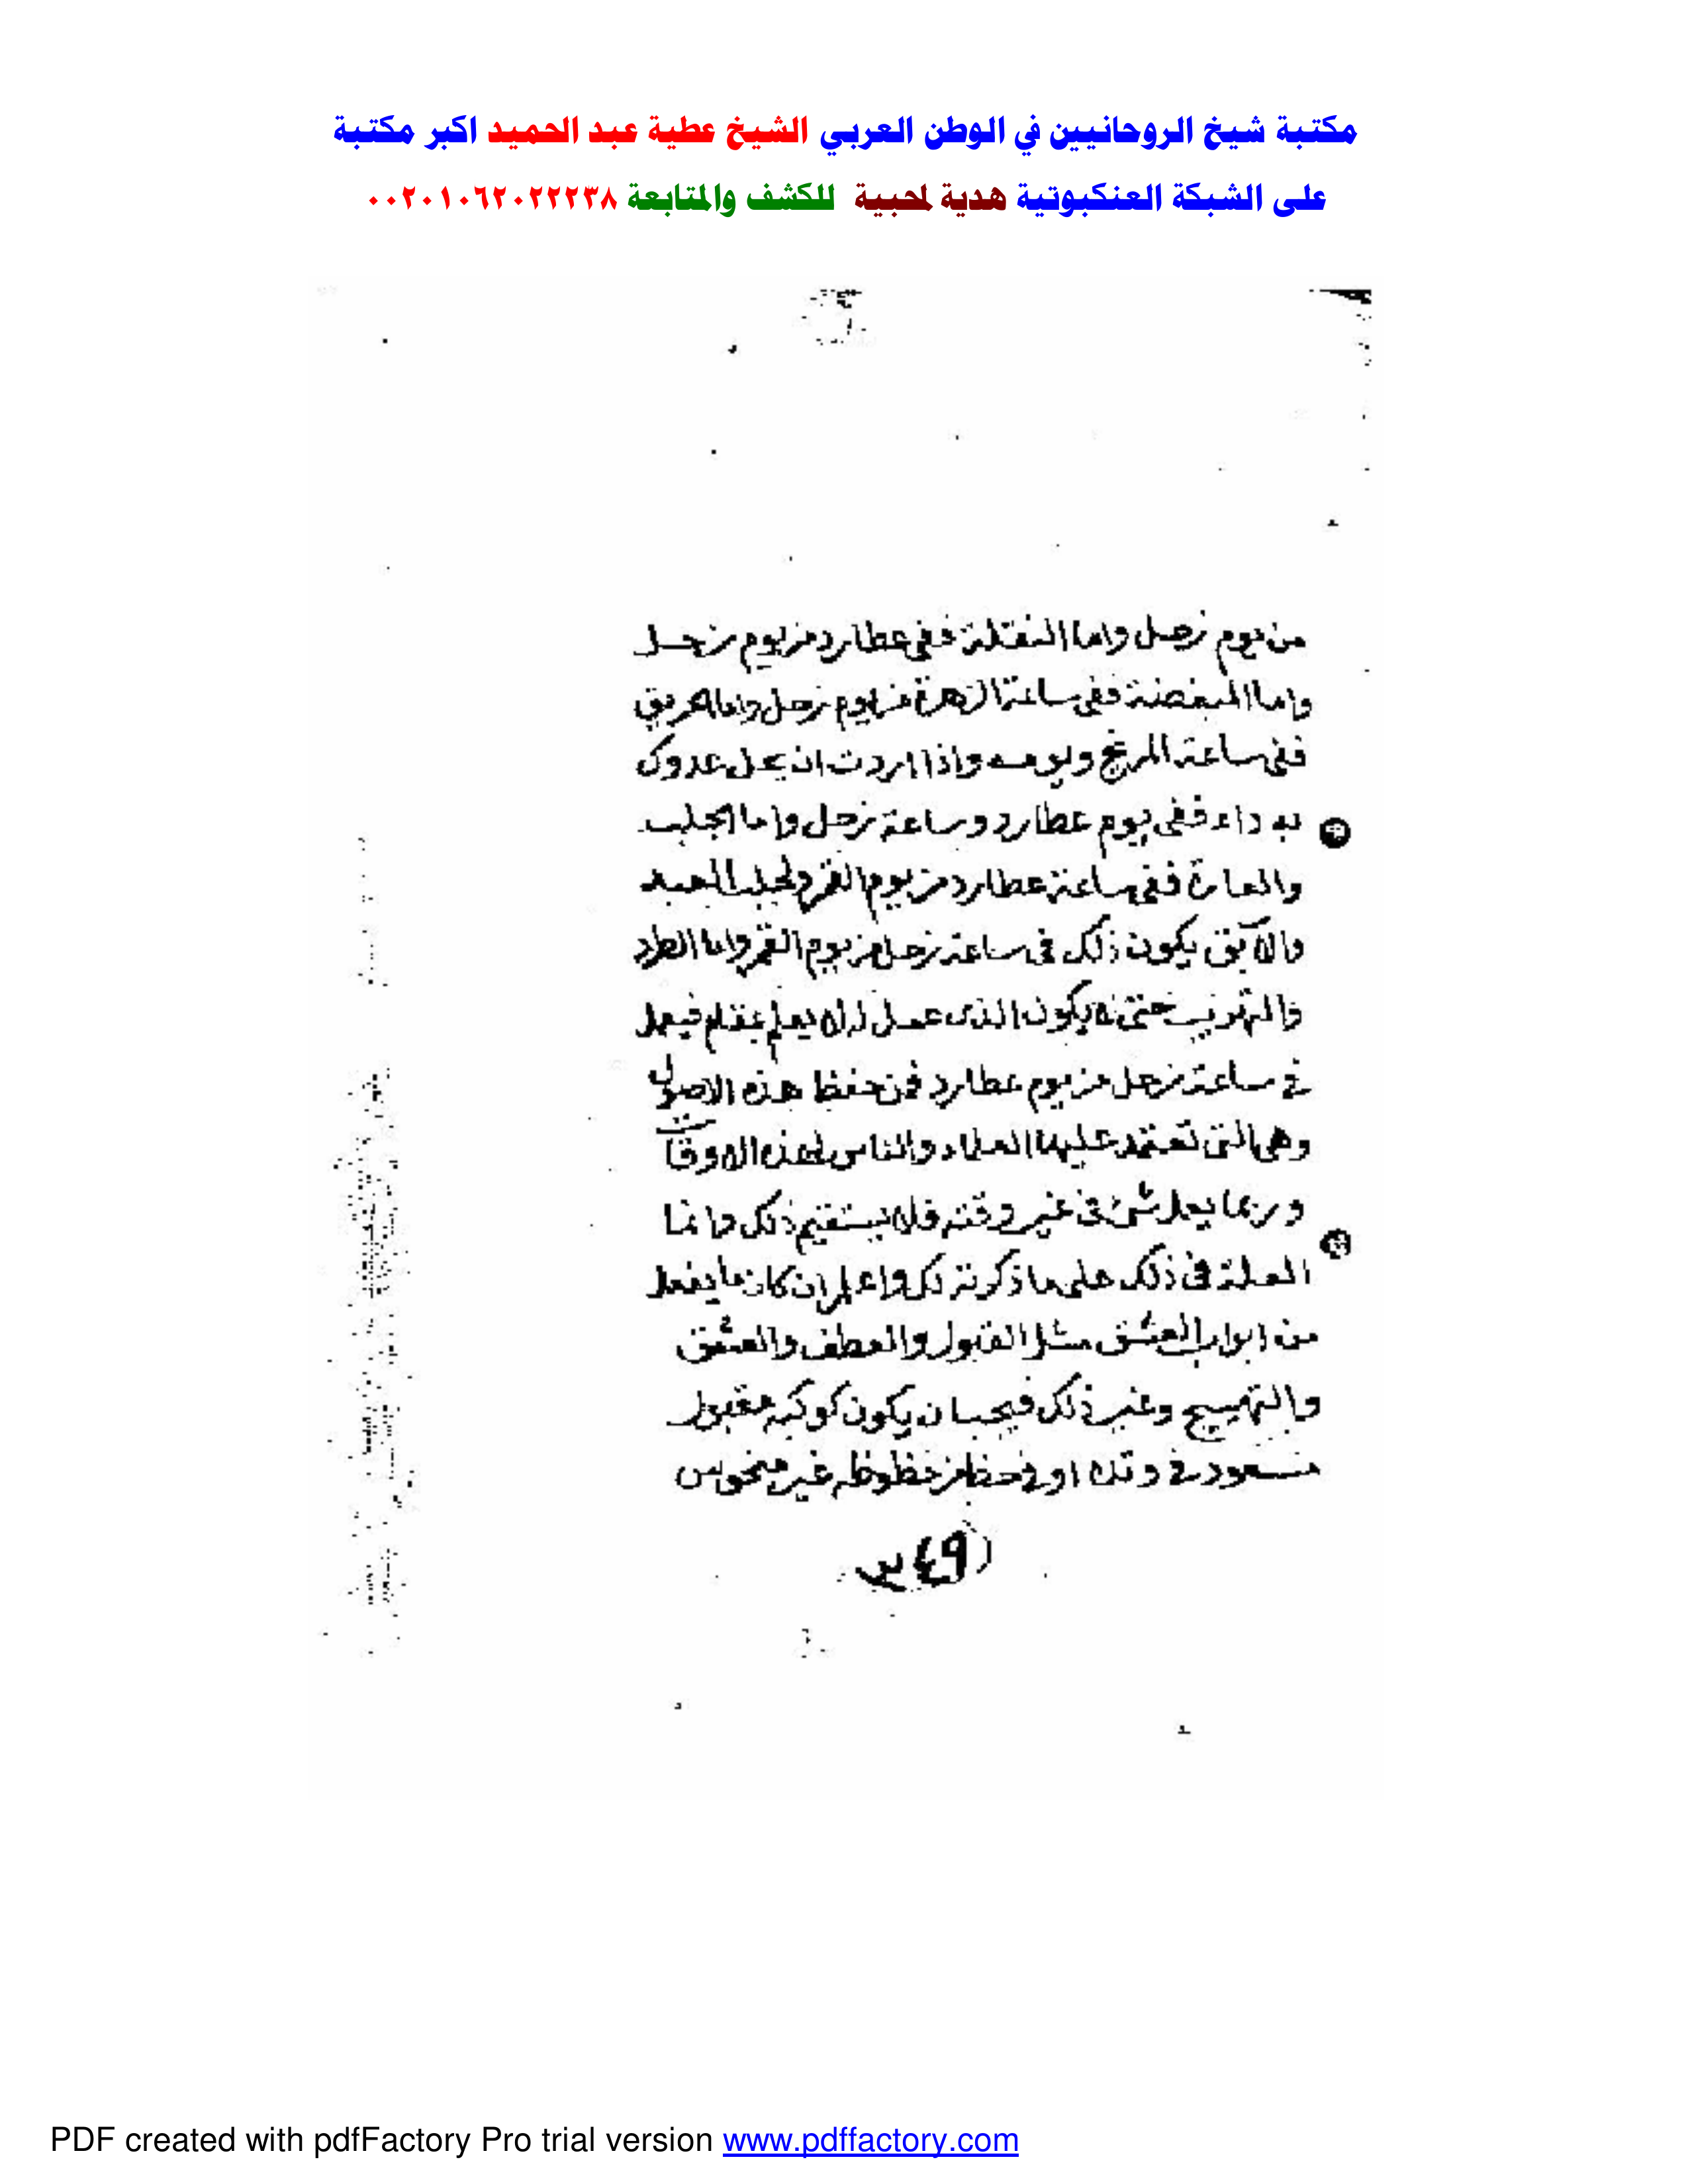 مكتبة شيخ الروحانيين في الوطن العربي الشيخ عطية عبد الحميد اكبر مكتبة
على الشبكة العنكبوتية هدية لمحبية للكشف والمتابعة ٠٠٢٠١٠٦٢٠٢٢٢٣٨
من يوم زحل واما النقلة ففى عطارد من يوم زحل
واما المبغضة ففى ساعة الزهرة من يوم زحل واما
ففى ساعة المريخ ويومه واذا اردت ان يحل عدوك
به داء ففى يوم عطارد وساعة زحل واما الجلب
ففى ساعة عطارد من يوم القمر
والآبق يكون ذلك فى ساعة زحل من يوم القمر واما الطرد
يكون الذى عمل له يعلم فيعمل
فى ساعة زحل من يوم عطارد فمن حفظ هذه الاصول
وهى التى تعتمد عليها العلماء والناس لهذه الاوقات
وربما يعمل شئ فى غير وقته فلا يستقيم ذلك وانما
العلة فى ذلك على ما ذكرته لك واعلم ان كان ما يفعل
من ابواب العشق مثل القبول والعطف والعشق
والتهييج وغير ذلك فيجب ان يكون كوكبه مقبول
مسعود فى وتده او فى حظ من حظوظه غير منحوس
PDF created with pdfFactory Pro trial version www.pdffactory.com